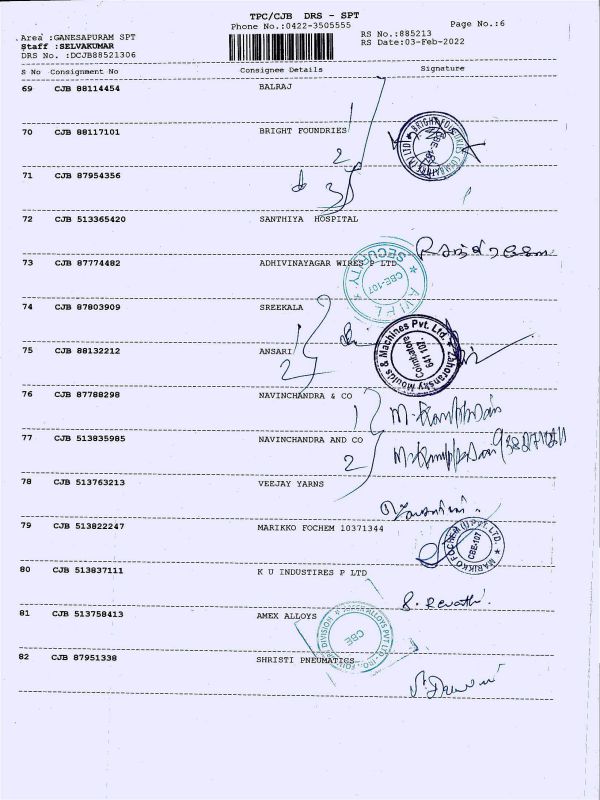 TPC/CJB DRS - SPT
Phone No.:0422-3505555
Page No.:6
Area :GANESAPURAM SPT
Staff :SELVAKUMAR
DRS No. :DCJB88521306
RS No.:885213
RS Date:03-Feb-2022
S No Consignment No Consignee Details Signature
69 CJB 88114454 BALRAJ
1
70 CJB 88117101 BRIGHT FOUNDRIES
2
71 CJB 87954356
3
72 CJB 513365420 SANTHIYA HOSPITAL
73 CJB 87774482 ADHIVINAYAGAR WIRES P LTD
SECURITY
CBE-107
74 CJB 87803909 SREEKALA
1
75 CJB 88132212 ANSARI
2
Zahoransky Moulds & Machines Pvt. Ltd.
Coimbatore
641 107.
76 CJB 87788298 NAVINCHANDRA & CO
1
77 CJB 513835985 NAVINCHANDRA AND CO
2
78 CJB 513763213 VEEJAY YARNS
79 CJB 513822247 MARIKKO FOCHEM 10371344
MARIKKO FOCHEM (I) PVT. LTD.
CBE-107
80 CJB 513837111 K U INDUSTIRES P LTD
S. Revathi.
81 CJB 513758413 AMEX ALLOYS
CBE
82 CJB 87951338 SHRISTI PNEUMATICS